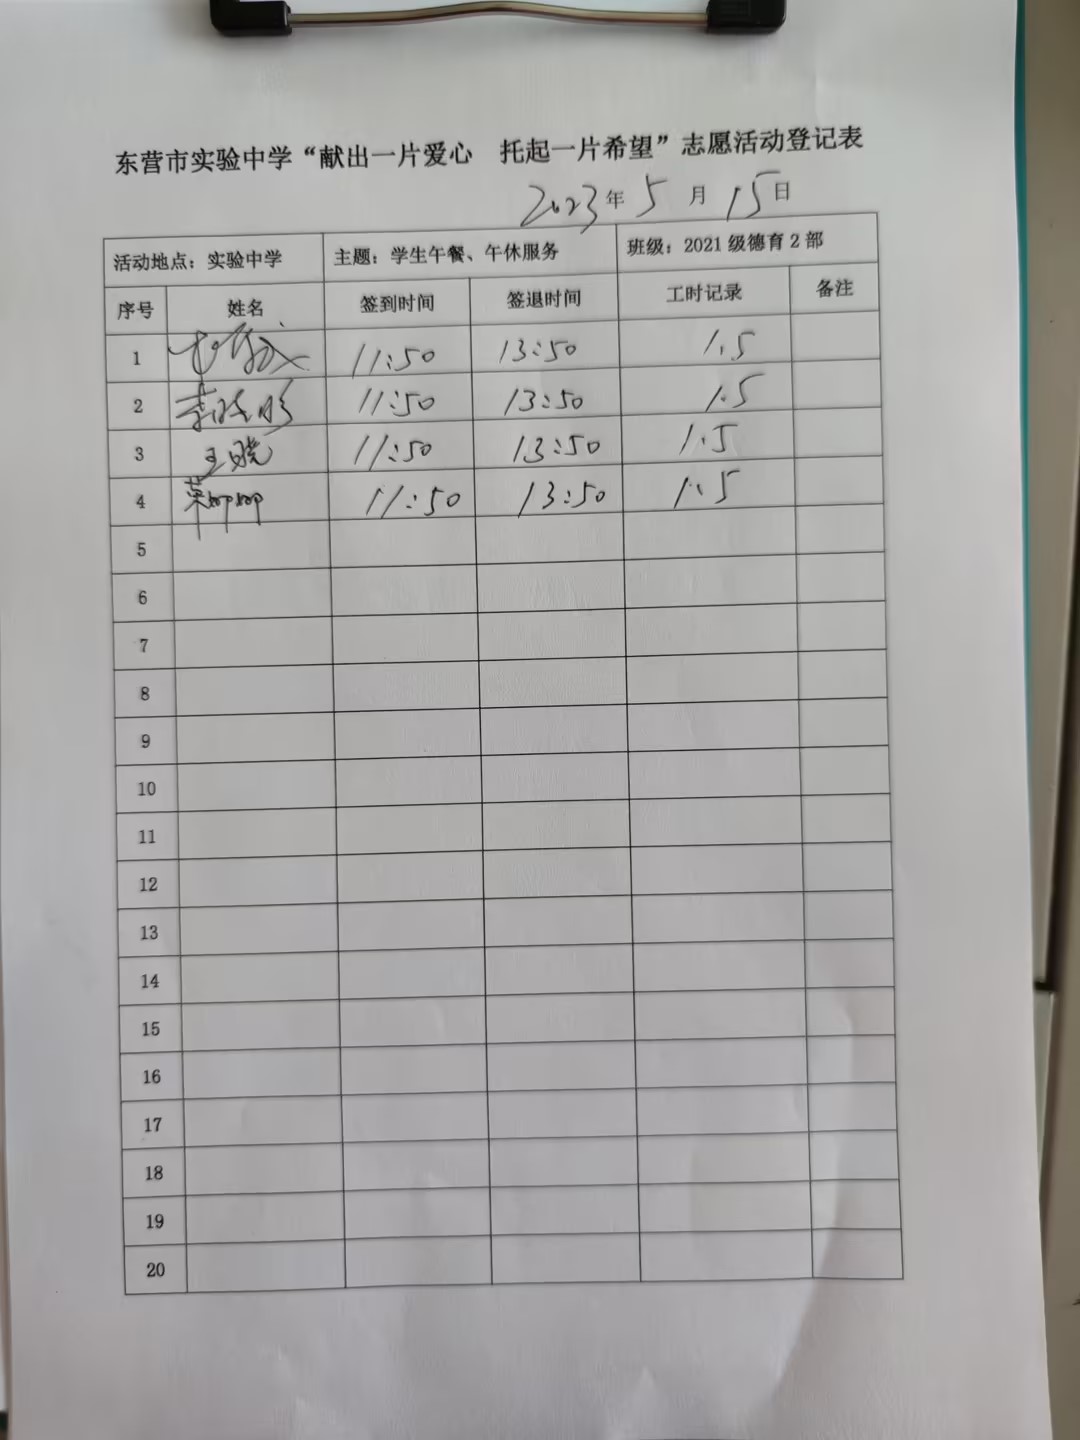 东营市实验中学“献出一片爱心 托起一片希望”志愿活动登记表
2023年 5 月 15日
活动地点：实验中学 主题：学生午餐、午休服务 班级：2021级德育2部
序号 姓名 签到时间 签退时间 工时记录 备注
1 11:50 13:50 1.5
2 李晓彤 11:50 13:50 1.5
3 王晓 11:50 13:50 1.5
4 11:50 13:50 1.5
5
6
7
8
9
10
11
12
13
14
15
16
17
18
19
20